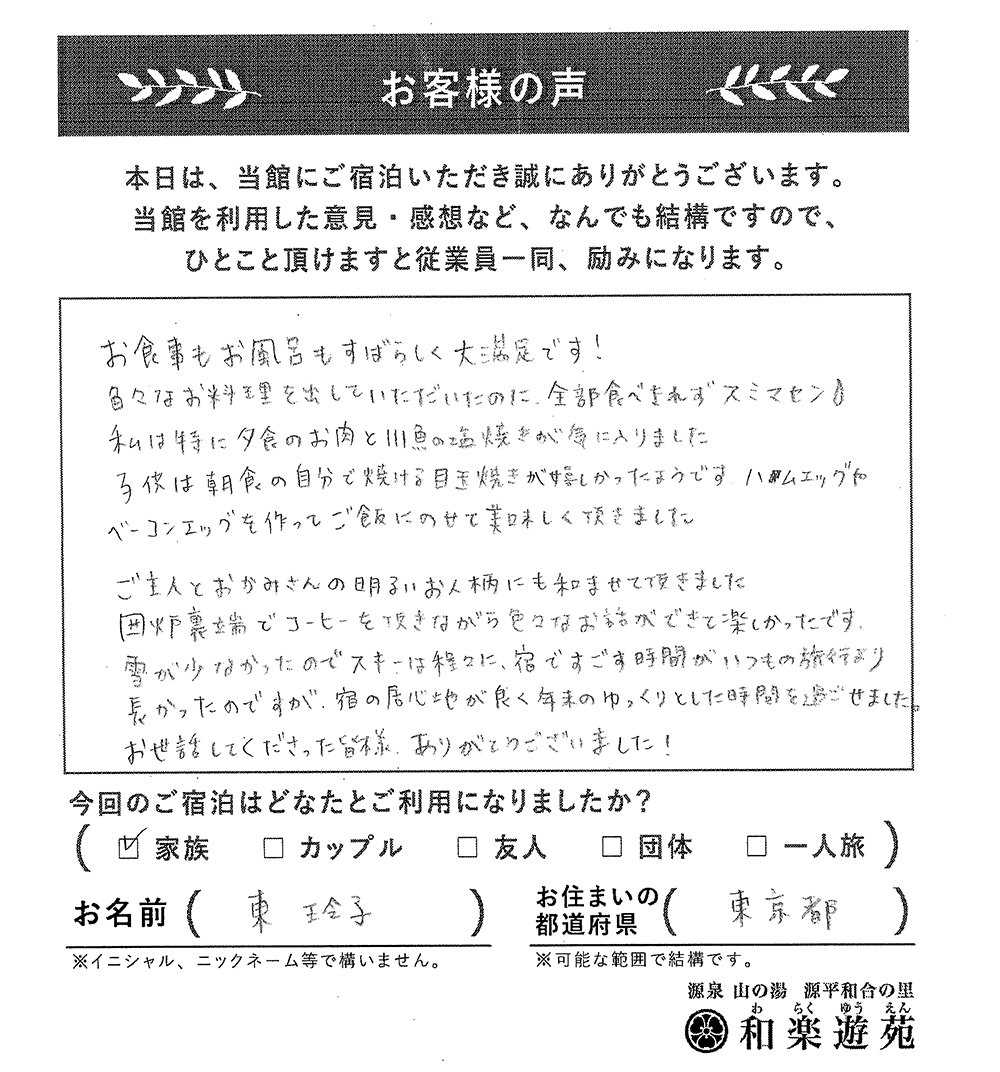 お客様の声
本日は、当館にご宿泊いただき誠にありがとうございます。
当館を利用した意見・感想など、なんでも結構ですので、
ひとこと頂けますと従業員一同、励みになります。
お食事もお風呂もすばらしく大満足です!
色々なお料理を出していただいたのに、全部食べきれずスミマセン
私は特に夕食のお肉と川魚の塩焼きが気に入りました
子供は朝食の自分で焼ける目玉焼きが嬉しかったようです ハムエッグや
ベーコンエッグを作ってご飯にのせて美味しく頂きました
ご主人とおかみさんの明るいお人柄にも和ませて頂きました
囲炉裏端でコーヒーを頂きながら色々なお話ができて楽しかったです。
雪が少なかったのでスキーは程々に、宿ですごす時間がいつもの旅行より
長かったのですが、宿の居心地が良く年末のゆっくりとした時間を過ごせました。
お世話してくださった皆様、ありがとうございました!
今回のご宿泊はどなたとご利用になりましたか?
( ☑ 家族 □ カップル □ 友人 □ 団体 □ 一人旅 )
お名前 ( 東 玲子 ) お住まいの都道府県 ( 東京都 )
※イニシャル、ニックネーム等で構いません。 ※可能な範囲で結構です。
源泉 山の湯 源平和合の里
わ らく ゆう えん
和楽遊苑